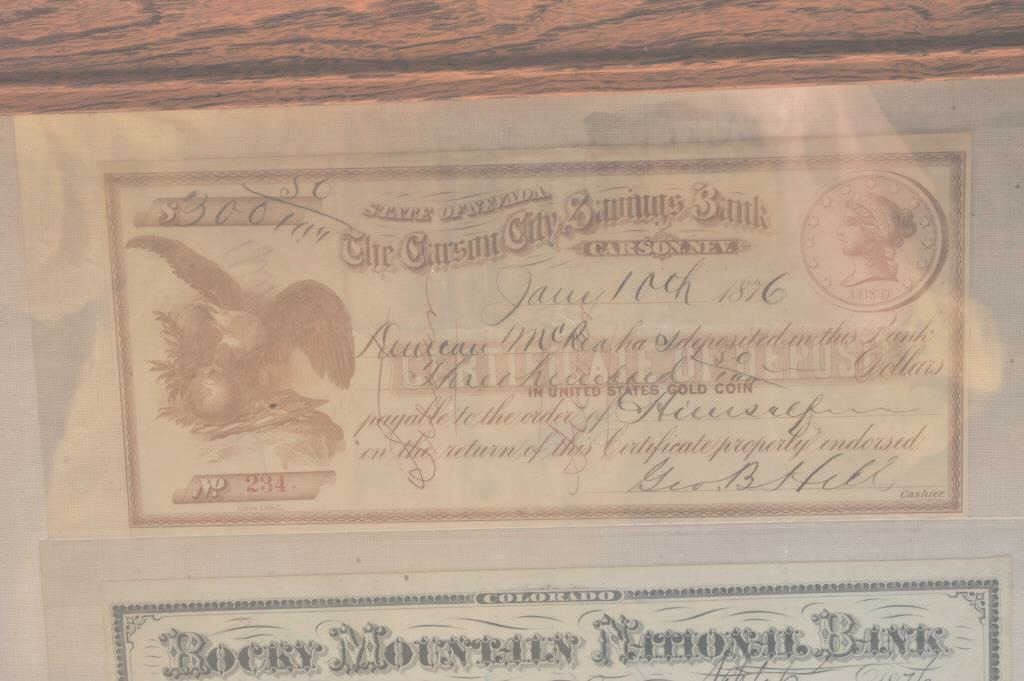 $300 50/100
STATE OF NEVADA
The Carson City Savings Bank
CARSON, NEV.
Jany 10th 1876
Duncan McRea has deposited in this Bank
CERTIFICATE OF DEPOSIT
Three hundred 50/100 Dollars
IN UNITED STATES GOLD COIN
payable to the order of Himself
on the return of this Certificate property endorsed.
Geo. B Hill
Cashier.
No 234.
COLORADO
ROCKY MOUNTAIN NATIONAL BANK
1876